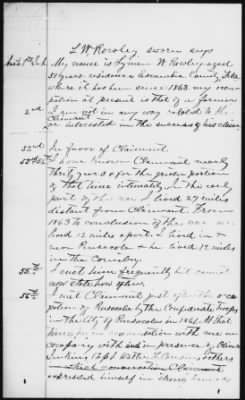 L W Rowley sworn says
My name is Lyman W Rowley aged
residence Escambia County, Fla
where it has been since 1863 my occu-
pation at present is that of a farmer
2nd I am not in any way related to the
Claimant
or interested in the success of his claim
52nd In favor of Claimant
I have known Claimant nearly
thirty years & for the greater portion
of that time intimately. In the early
part of the war I lived 27 miles
distant from Claimant. From
1863 to conclusion of the war we
lived 12 miles apart. I lived in &
near Pensacola & he lived 12 miles
in the Country.
I met him frequently but cannot
now state how often.
I met Claimant just after the occu-
pation of Pensacola by the Confederate troops
in the City of Pensacola in 1861. At that
time in conversation with me in
company with and in presence of Oliver
Jenkins Capt Walter others
expressed himself in strong